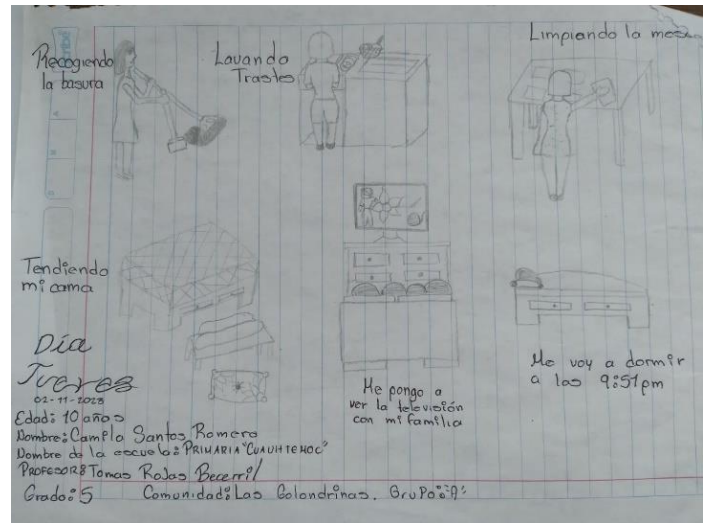 Recogiendo
la basura
Lavando
Trastes
Limpiando la mesa
Tendiendo
mi cama
Me pongo a
ver la televisión
con mi familia
Me voy a dormir
a las 9:51pm
Día
Jueves
02-11-2023
Edad: 10 años
Nombre: Camila Santos Romero
Nombre de la escuela: PRIMARIA "CUAUHTEMOC"
PROFESOR: Tomas Rojas Becerril
Grado: 5 Comunidad: Las Golondrinas. GruPo: "A"